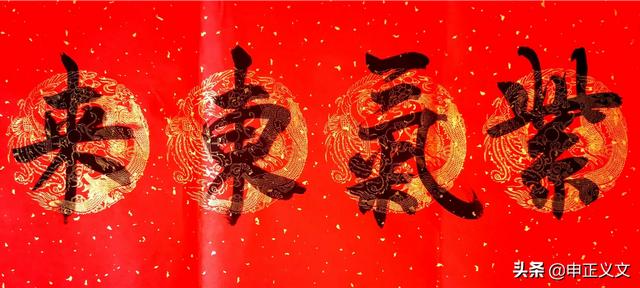 紫氣東来
头条 @申正义文